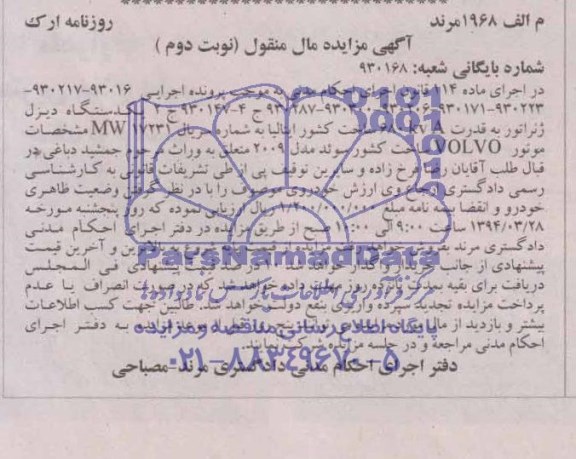 م الف ۱۹۶۸مرند
روزنامه ارک
آگهی مزایده مال منقول (نوبت دوم )
شماره بایگانی شعبه: ۹۳۰۱۶۸
در اجرای ماده ۱۱۴ قانون اجرای احکام مدنی به موجب پرونده اجرایی ۹۳۰۱۶-۹۳۰۲۱۷-
۹۳۰۲۲۳-۹۳۰۱۷۱- یکدستگاه دیزل
ژنراتور به قدرت ساخت کشور ایتالیا به شماره سریال MW ۱۷۲۳۱ مشخصات
موتور VOLVO ساخت کشور سوئد مدل ۲۰۰۹ متعلق به وراث مرحوم جمشید دباغی در
قبال طلب آقایان رضا فرخ زاده و سایرین توقیف پی از طی تشریفات قانونی به کارشناسی
رسمی دادگستری ارجاع وی ارزش خودروی موصوف را با در نظر گرفتن وضعیت ظاهری
خودرو و انقضا بیمه نامه مبلغ ریال ارزیابی نموده که روز پنجشنبه مورخه
۱۳۹۴/۰۳/۲۸ ساعت ۹:۰۰ الی ۱۰:۰۰ صبح از طریق مزایده در دفتر اجرای احکام مدنی
دادگستری مرند بفروش خواهد رسید مزایده از قیمت شروع به بالاترین و آخرین قیمت
پیشنهادی از جانب خریدار واگذار خواهد شد ۱۰ در صد قیمت پیشنهادی فی المجلس
دریافت برای بقیه بمدت پانزده روز مهلت داده خواهد شد که در صورت انصراف یا عدم
پرداخت مزایده تجدید سپرده واریزی بنفع دولت خواهد شد. طالبین جهت کسب اطلاعات
بیشتر و بازدید از مال به دفتر اجرای
احکام مدنی مراجعه و در جلسه مزایده شرکت نمایند.
دفتر اجرای احکام مدنی دادگستری مرند-مصباحی
ParsNamadData
پایگاه اطلاع رسانی مناقصه و مزایده
۰۲۱-۸۸۳۴۹۶۷۰-۵